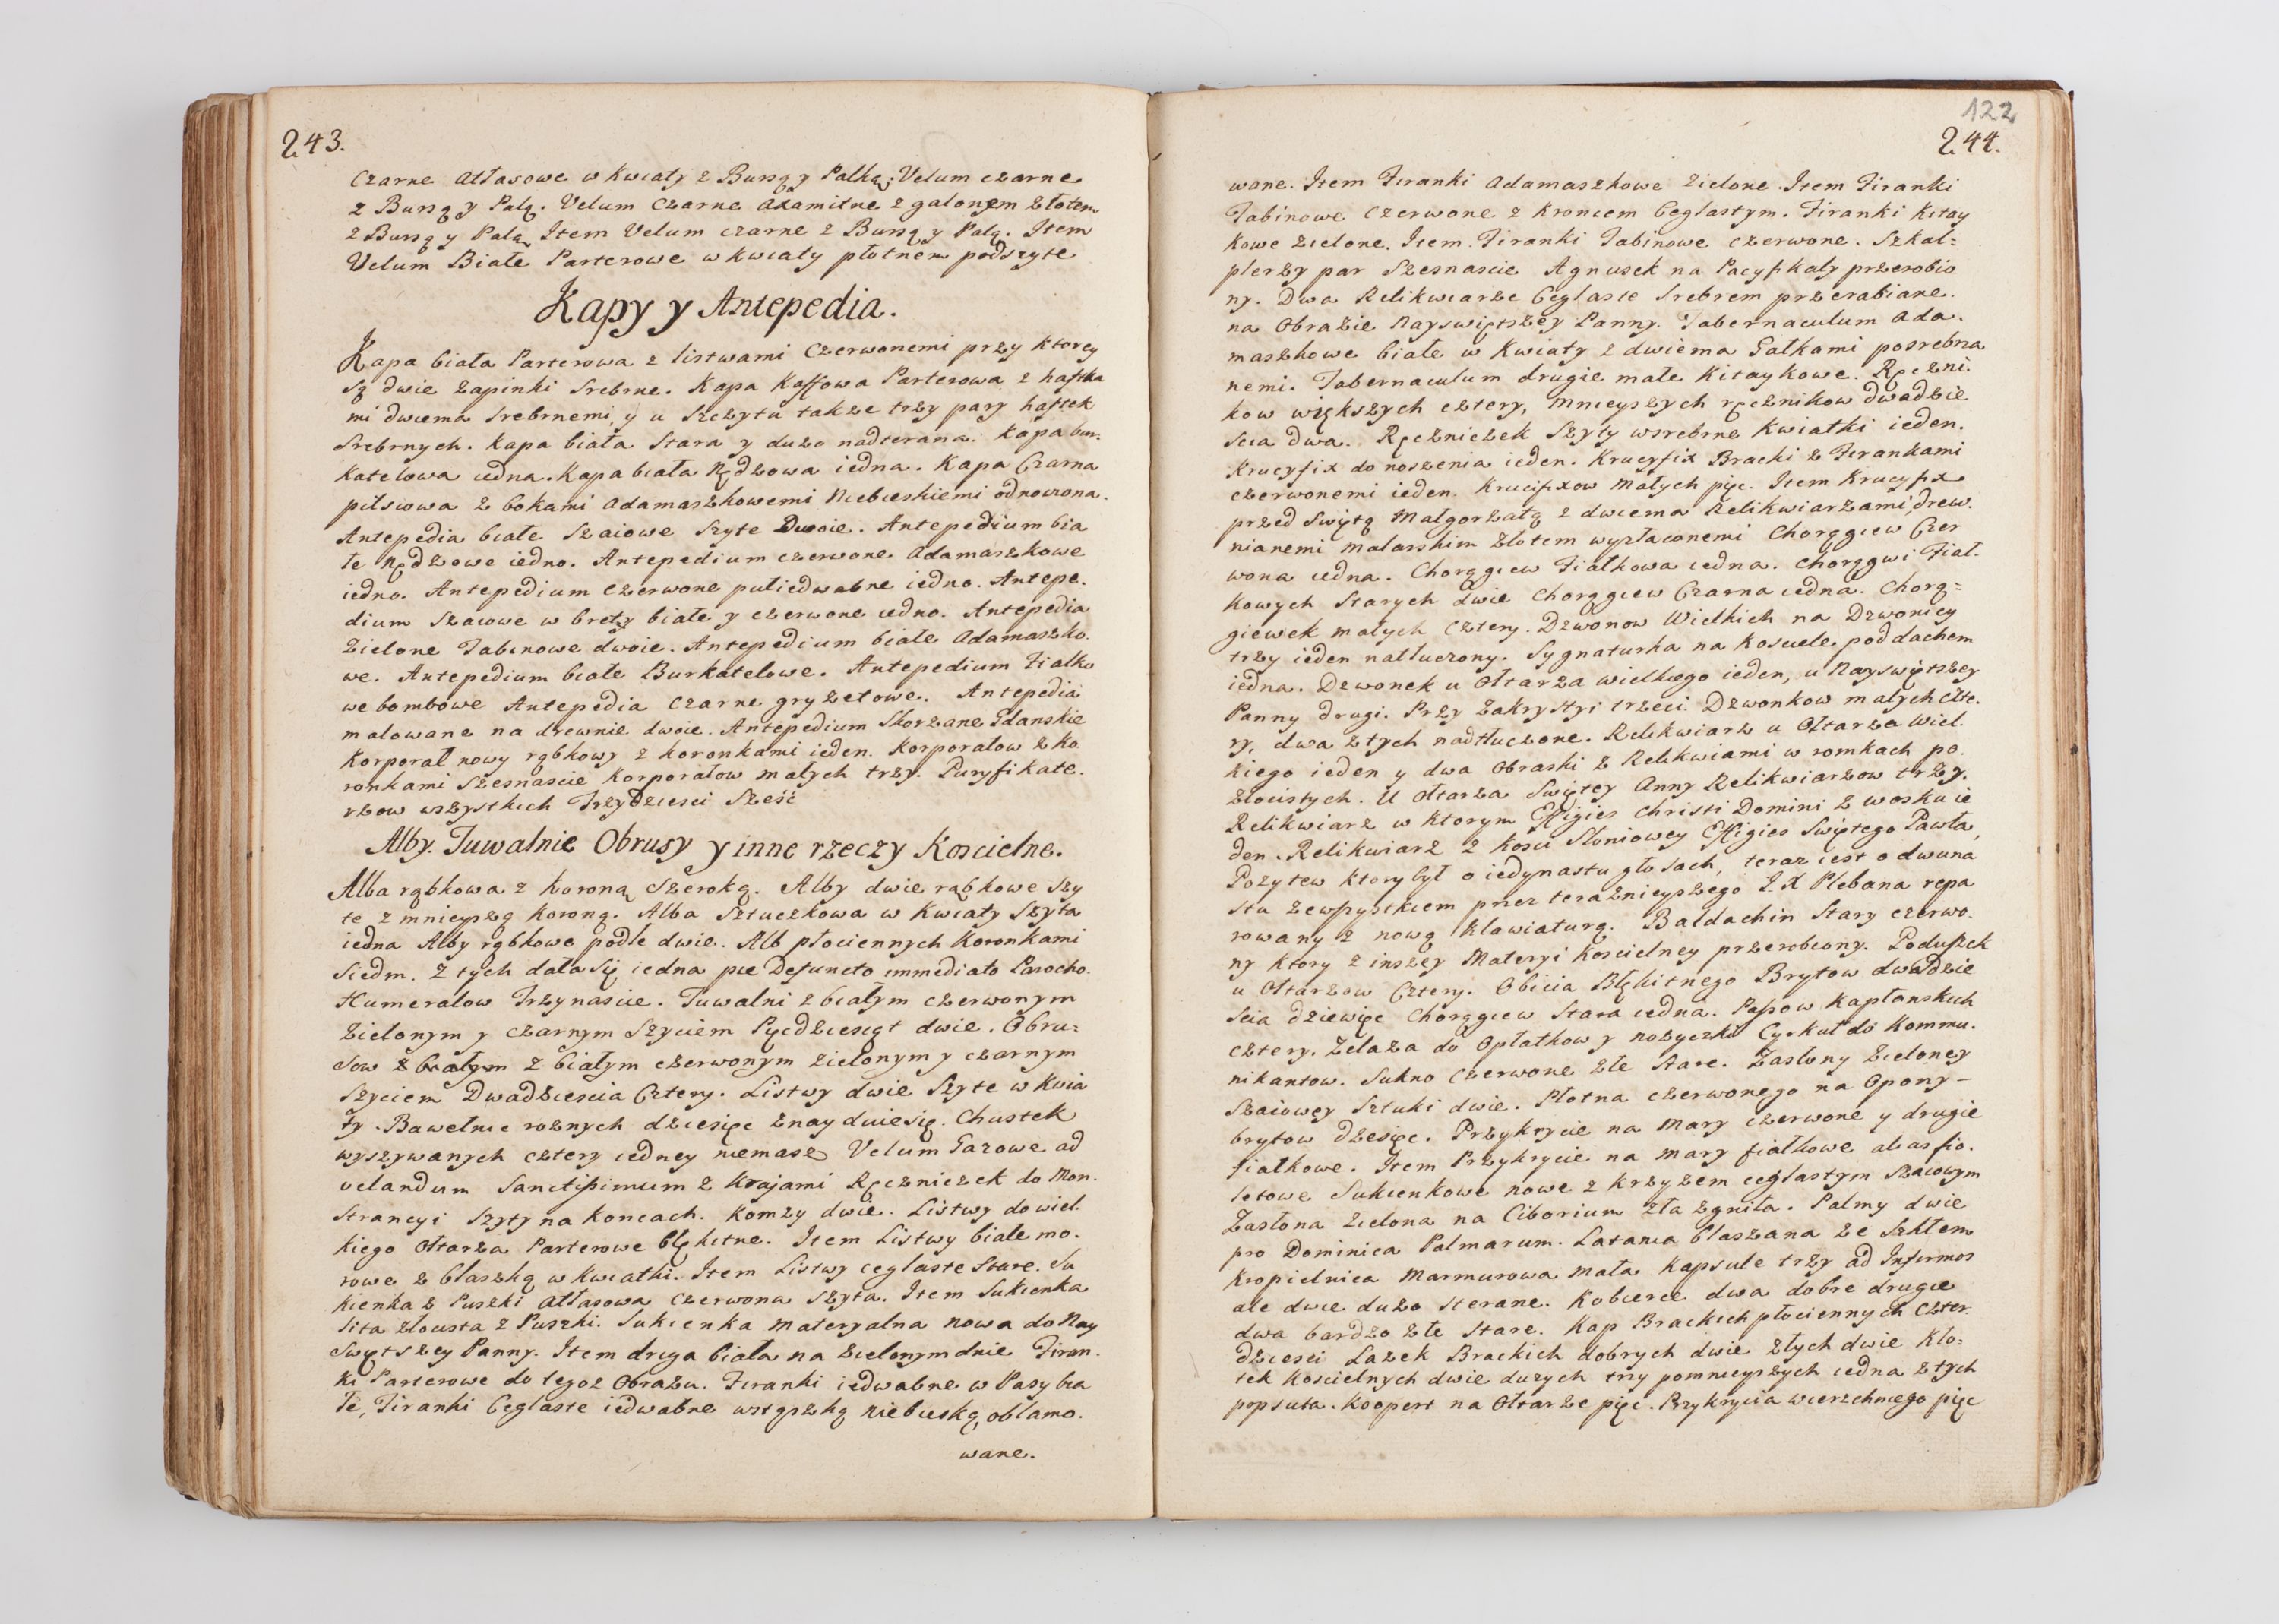 243.
Czarne Atłasowe w Kwiaty z Bursą y Palką; Velum czarne
z Bursą y Palą. Velum Czarne Axamitne z galonem złotem
z Bursą y Palą Item Velum czarne z Bursą y Palą. Item
Velum Białe Parterowe w kwiaty płotnem podszyte
Kapy y Antepedia.
Kapa biała Parterowa z listwami Czerwonemi przy ktorey
są dwie zapinki Srebrne. Kapa Kaffowa Parterowa z haftka
mi dwiema Srebrnemi, y u Szczytu takze trzy pary haftek
Srebrnych. Kapa biała Stara y duzo nadterana. Kapa bur:
katelowa iedna. Kapa biała Rądzowa iedna. Kapa Czarna
pilsiowa z bokami Adamaszkowemi Niebieskiemi odnowiona.
Antepedia białe Szaiowe Szyte Dwoie. Antepedium bia
łe Rądzowe iedno. Antepedium czerwone Adamaszkowe
iedno. Antepedium Czerwone puliedwabne iedno. Antepe.
dium Szaiowe w brety białe y czerwone iedno. Antepedia
Zielone Tabinowe dwoie. Antepedium białe Adamaszko.
we. Antepedium białe Burkatelowe. Antepedium Fiałko
we bombowe Antepedia Czarne gryzetowe. Antepedia
malowane na drewnie dwoie. Antepedium Skorzane Gdanskie
Korporał nowy rąbkowy z koronkami ieden. Korporałow z Ko.
ronkami Szesnascie Korporałow małych trzy. Puryfikate.
rzow wszystkich Trzydziesci Sześć
Alby. Tuwalnie Obrusy y inne rzeczy Koscielne.
Alba rąbkowa z Koroną Szeroką. Alby dwie rąbkowe Szy
te z mnieyszą Koroną. Alba Sztuczkowa w Kwiaty Szyta
iedna Alby rąbkowe podłe dwie. Alb płociennych Koronkami
Siedm. Z tych dała się iedna pie Defuncto immediato Parocho.
Humerałow Trzynascie. Tuwalni z białym czerwonym
Zielonym y czarnym Szyciem Pięćdziesiąt dwie. Obru:
sow z białym z białym czerwonym zielonym y czarnym
Szyciem Dwadziescia Cztery. Listwy dwie Szyte w Kwia
ty. Bawełnie roznych dziesięć znayduie się. Chustek
wyszywanych cztery iedney niemasz Velum Gazowe ad
velandum Sanctissimum z Krajami Ręczniczek do Mon.
strancyi Szyty na Koncach. Komzy dwie. Listwy do wiel.
kiego Ołtarza Parterowe błękitne. Item Listwy białe mo.
rowe z blaszką w Kwiatki. Item Listwy ceglaste Stare. Su
kienka z Puszki Atłasowa Czerwona Szyta. Item Sukienka
lita złocista z Puszki. Sukienka materyalna nowa do Nay
Swiętszey Panny. Item druga biała na zielonym dnie Firan.
ki Parterowe do tegoz Obrazu. Firanki iedwabne w Pasy bia
łe, Firanki Ceglaste iedwabne wstęszką niebieską, oblamo.
wane.
122
244.
wane. Item Firanki Adamaszkowe Zielone. Item Firanki
Tabinowe Czerwone z Kroncem Ceglastym. Firanki Kitay
kowe zielone. Item Firanki Tabinowe Czerwone. Szkal:
plerzy par Szesnascie Agnusek na Pacyfikały przerobio
ny. Dwa Relikwiarze Ceglaste Srebrem przerabiane.
na Obrazie Nayswiętszey Panny. Tabernaculum Ada.
maszkowe białe w Kwiaty z dwiema Gałkami posrebrna
nemi. Tabernaculum drugie małe Kitaykowe. Ręczni.
kow większych cztery, mnieyszych ręcznikow dwadzie
scia dwa. Ręczniczek Szyty wsrebrne Kwiatki ieden.
Krucyfix do noszenia ieden. Krucyfix Bracki z Firankami
czerwonemi ieden. Krucifixow Małych pięć. Item Krucyfix
przed Swiętą Małgorzatą z dwiema Relikwiarzami, drew.
nianemi malarskim złotem wyzłaconemi Chorągiew Czer
wona iedna. Chorągiew Fiałkowa iedna. Chorągwi Fiał.
kowych Starych dwie Chorągiew Czarna iedna. Chorą=
giewek małych Cztery. Dzwonow Wielkich na Dzwonicy
trzy ieden natłuczony. Sygnaturka na Kosciele pod dachem
iedna. Dzwonek u Ołtarza wielkiego ieden, u Nayswiętszey
Panny drugi. Przy Zakrystyi trzeci. Dzwonkow małych czte.
ry, dwa z tych nadtłuczone. Relikwiarz u Ołtarza Wiel.
kiego ieden y dwa Obraski z Relikwiami w romkach po.
złocistych. U Ołtarza Swiętey Anny Relikwiarzow trzy.
Relikwiarz w ktorym Effigies Christi Domini z wosku ie
den. Relikwiarz z kosci Słoniowey Effigies Swiętego Pawła,
Pozytew ktory był o iedynastu głosach, teraz iest o dwuna
stu zewszystkiem przez teraznieyszego I X Plebana repa
rowany z nową Klawiaturą. Baldachin Stary czerwo.
ny ktory z inszey Materyi Koscielney przerobiony. Poduszek
u Ołtarzow Cztery. Obicia Błękitnego Brytow dwadzie
scia dziewięć Chorągiew Stara iedna. Passow Kapłanskich
cztery. Zelaza do Opłatkow y nozyczki Cyrkuł do Kommu.
nikantow. Sukno czerwone złe Stare. Zasłony Zieloney
Szaiowey Sztuki dwie. Płotna czerwonego na Opony –
brytow dziesięć. Przykrycie na Mary czerwone y drugie
fiałkowe. Item Przykrycie na mary fiałkowe alias fio.
letowe Sukienkowe nowe z krzyzem ceglastym Szaiowym
Zasłona zielona na Ciborium zła zgniła. Palmy dwie
pro Dominica Palmarum. Latarnia blaszana ze Szkłem
Kropielnica Marmurowa mała Kapsule trzy ad Infirmos
ale dwie duzo sterane. Kobierce dwa dobre drugie
dwa bardzo złe stare. Kap Brackich płociennych czter.
dziesci Lasek Brackich dobrych dwie złych dwie Kło:
tek Koscielnych dwie duzych trzy pomnieyszych iedna z tych
popsuta. Koopert na Ołtarze pięć. Przykrycia wierzchniego pięć